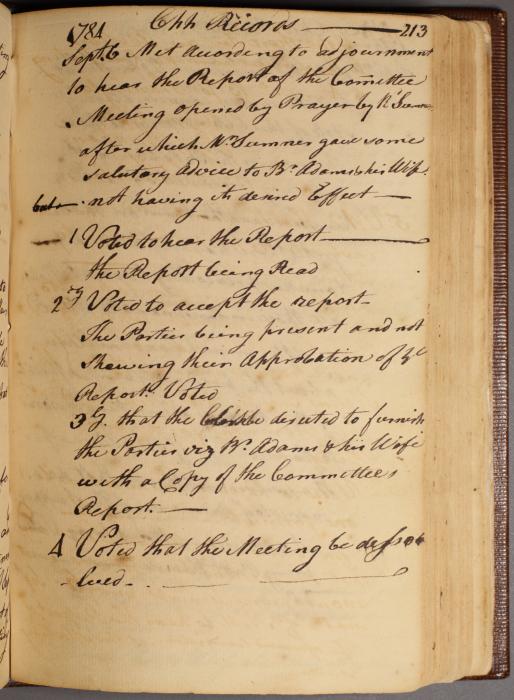 1784 Chh Records 213
Sept. 6 Met according to adjournment
to hear the Report of the Comittee
Meeting opened by Prayer by Mr Sumner
after which Mr. Sumner gave some
salutary advice to Br. Adams & his Wife.
but not having its desired Effect
1 Voted to hear the Report
the Report being Read
2ly Voted to accept the report
The Parties being present and not
shewing their Approbation of ye
Report. Voted
3ly. that the Clerk be directed to furnish
the Parties viz Mr. Adams & his Wife
with a Copy of the Committee's
Report.
4 Voted that the Meeting be disso
lved